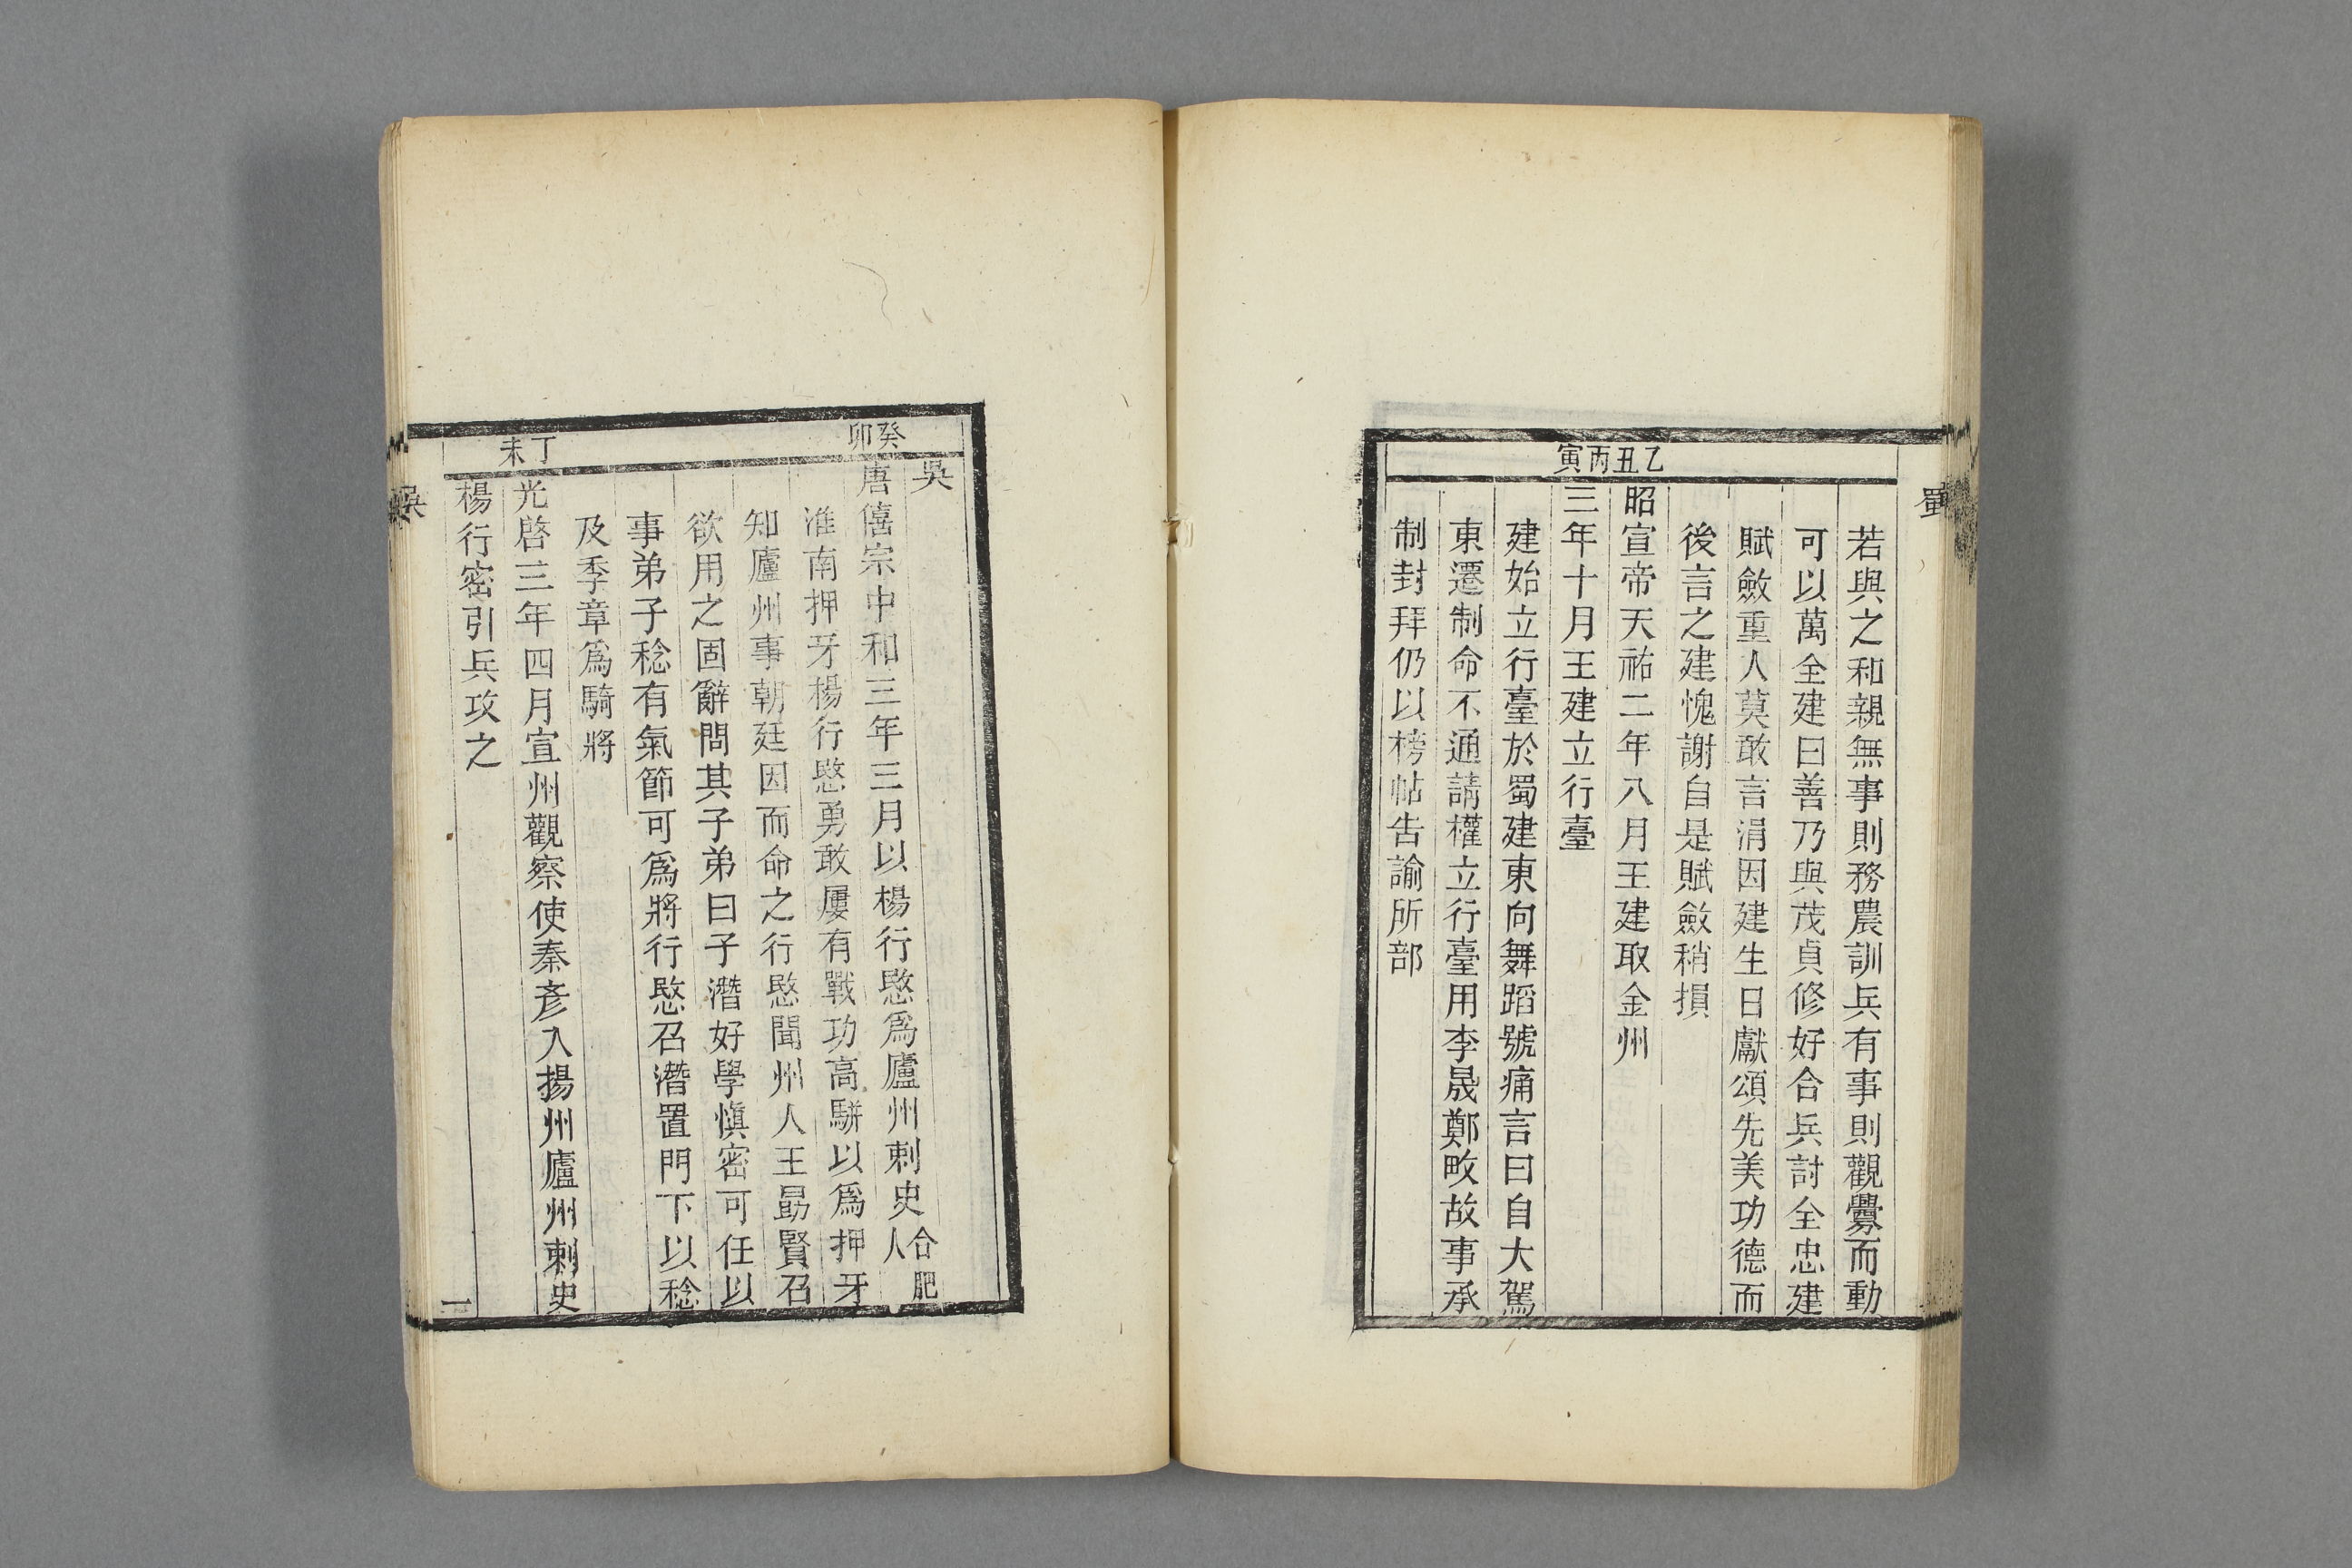 蜀
乙丑丙寅
若與之和親無事則務農訓兵有事則觀釁而動
可以萬全建曰善乃與茂貞修好合兵討全忠建
賦斂重人莫敢言涓因建生日獻頌先美功德而
後言之建愧謝自是賦斂稍損
昭宣帝天祐二年八月王建取金州
三年十月王建立行臺
建始立行臺於蜀建東向舞蹈號痛言曰自大駕
東遷制命不通請權立行臺用李晟鄭畋故事承
制封拜仍以榜帖告諭所部
癸卯
丁未
吳
唐僖宗中和三年三月以楊行愍爲廬州刺史合肥人
淮南押牙楊行愍勇敢屢有戰功高駢以爲押牙
知廬州事朝廷因而命之行愍聞州人王勗賢召
欲用之固辭問其子弟曰子潛好學愼密可任以
事弟子稔有氣節可爲將行愍召潛置門下以稔
及季章爲騎將
光啓三年四月宣州觀察使秦彥入揚州廬州刺史
楊行密引兵攻之
吳
一